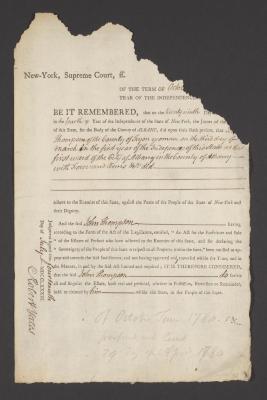 New-York, Supreme Court, ss.
OF THE TERM OF Octo
YEAR OF THE INDEPENDENC
BE IT REMEMBERED, that on the twenty ninth
in the fourth Year of the Independence of the State of New-York, the Jurors of the
of this State, for the Body of the County of ALBANY, did upon their Oath present, that
Thompson of the County of Tryon on the third day of
March in the first year of the Independence of this State at the
first ward of the City of Albany in the County of Albany
with Force and Arms &c did
adhere to the Enemies of this State, against the Peace of the People of the State of New-York and
their Dignity.
And the said John Thompson having,
according to the Form of the Act of the Legislature, entitled, "An Act for the Forfeiture and Sale
"of the Estates of Persons who have adhered to the Enemies of this State, and for declaring the
"Sovereignty of the People of this State in respect to all Property within the same," been
and not having appeared and traversed within the Time, and in
the Manner, in and by the said Act limited and required; IT IS THEREFORE CONSIDERED,
that the said John Thompson do forfeit
all and singular the Estate, both real and personal, whether in Possession, Reversion or Remainder,
held or claimed by him within this State, to the People of this State.
Judgment signed this fourteenth
Day of July MDCCLXXXIII.
Robert Yates
of October Term 1780
1780